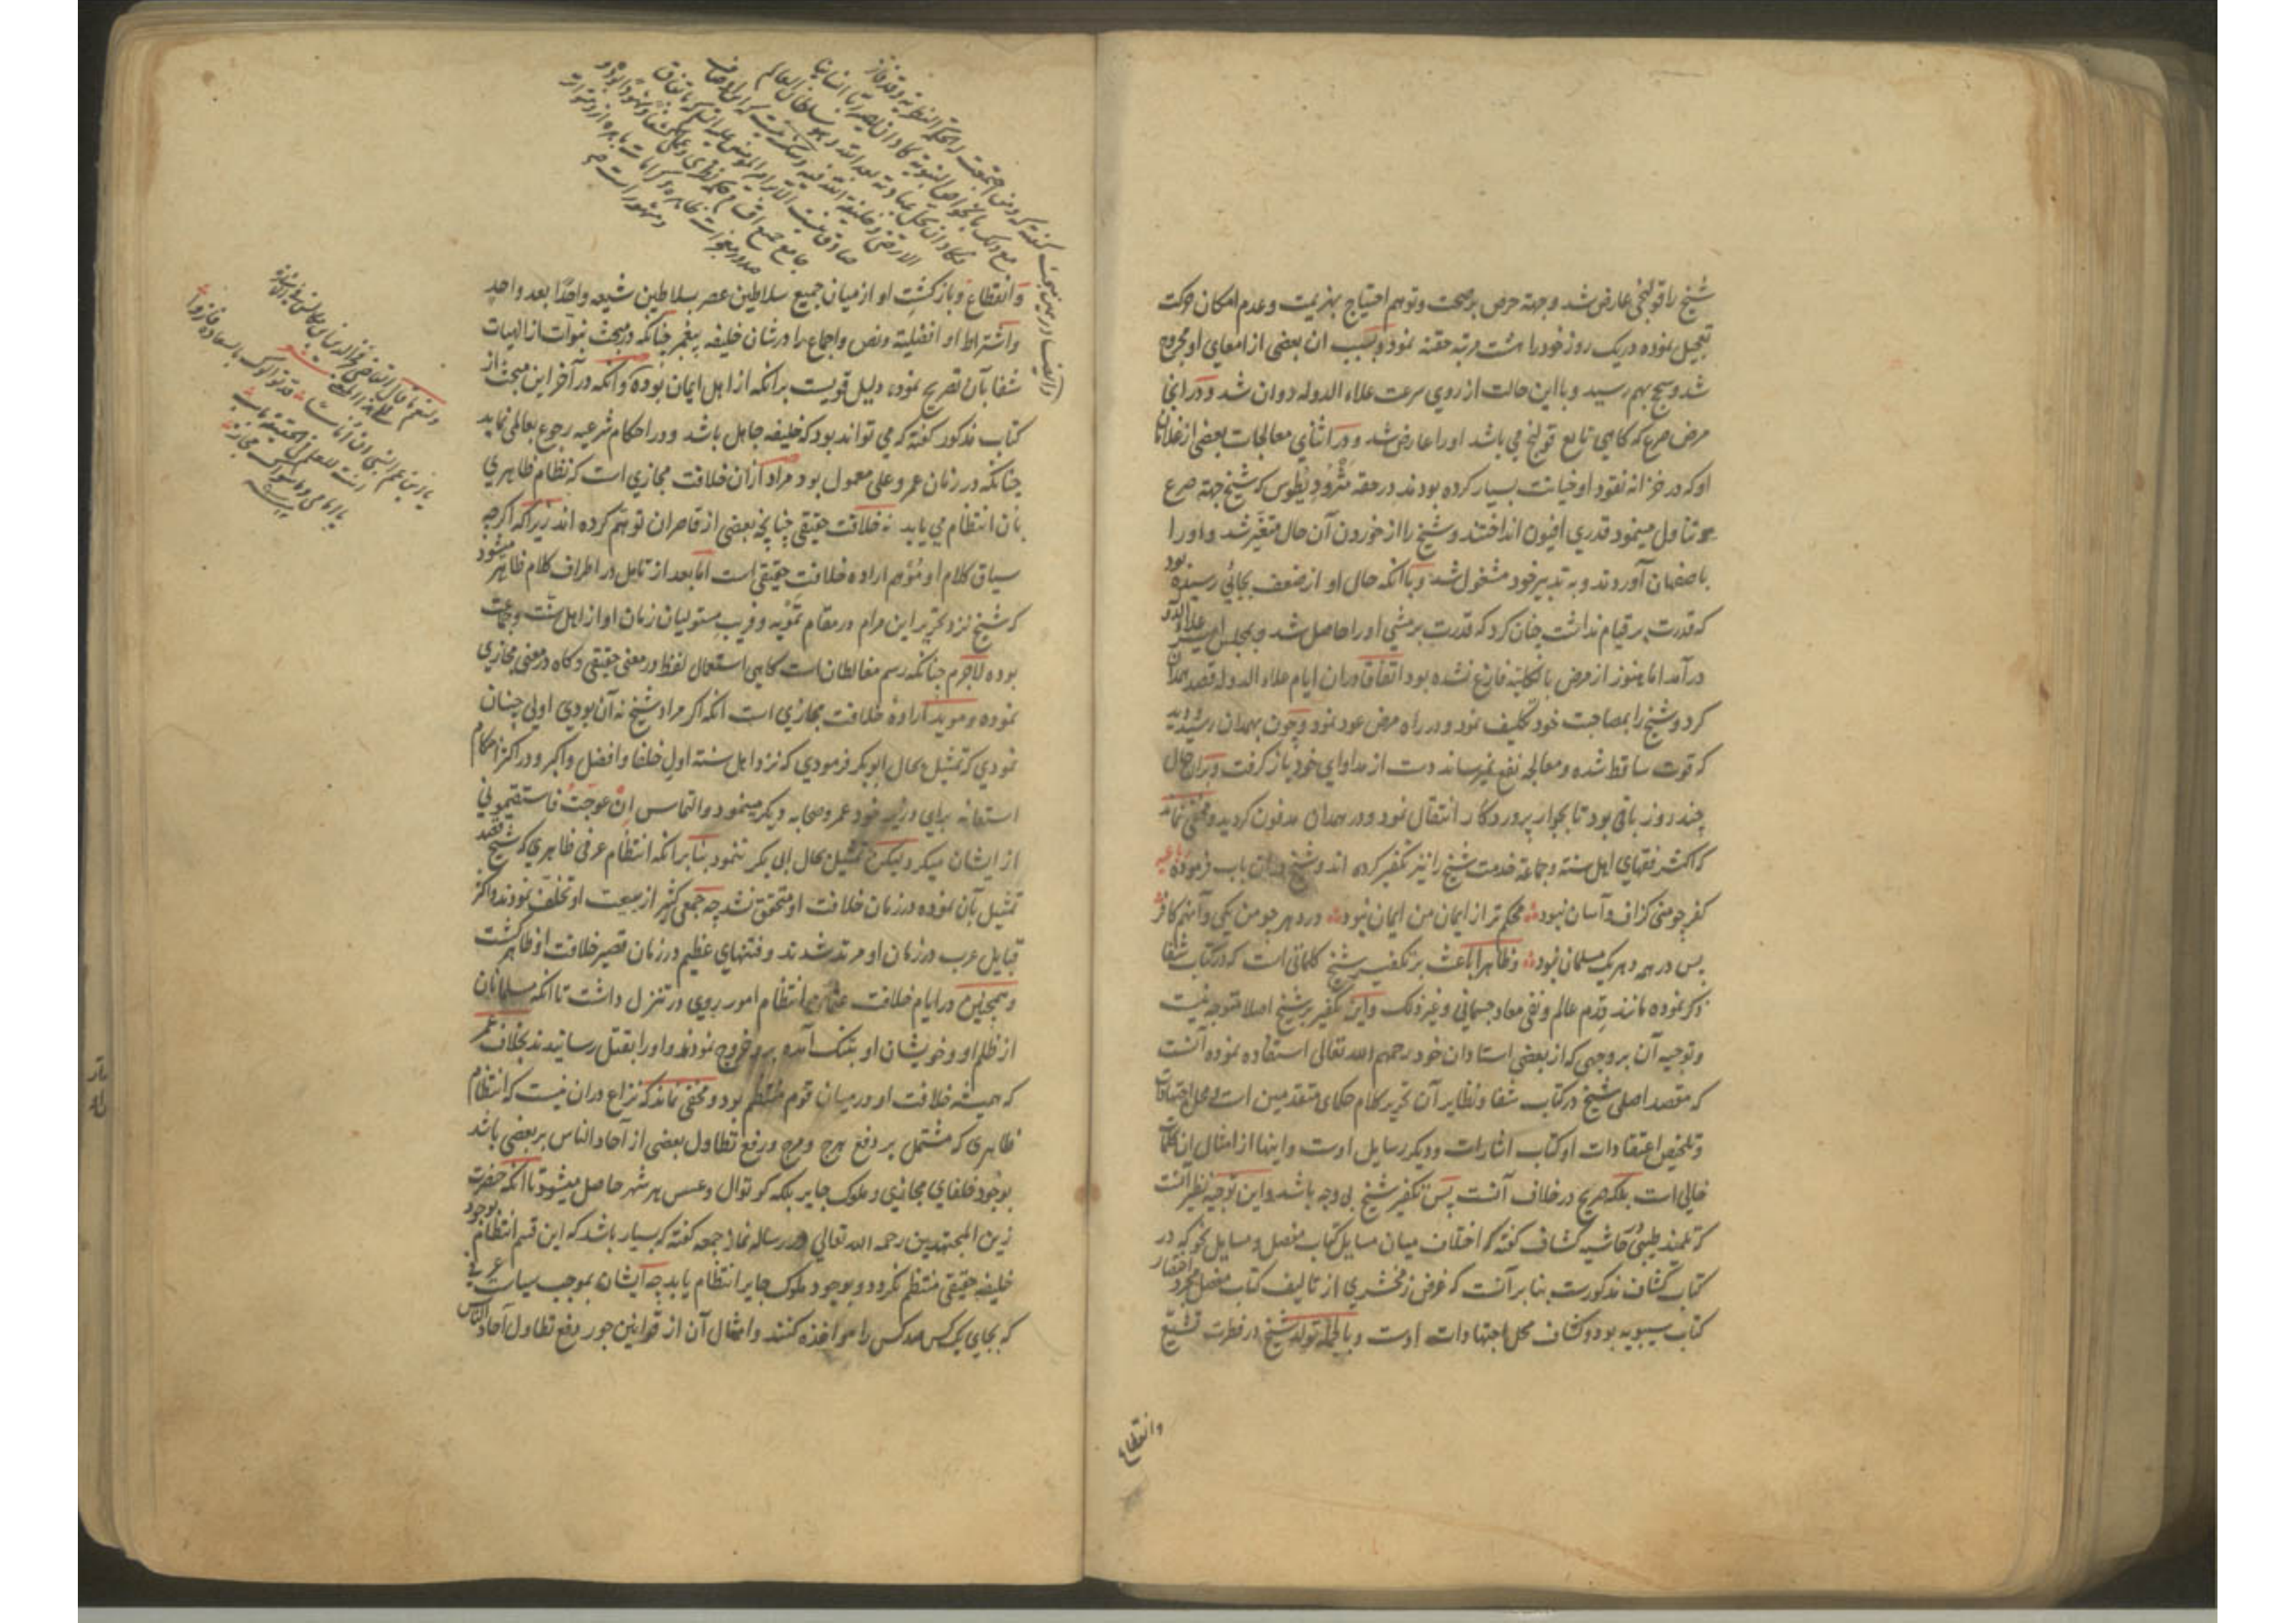 شیخ را قولنجی عارض شد و جهة حرص بر صحت و توهم احتیاج بهزیمت و عدم امکان حرکت
تعجیل نموده در یک روز خود را هشت مرتبه حقنه نمود و بسبب آن بعضی از امعای او مجروح
شد و سحج بهم رسید و با این حالت از روی سرعت علاء الدوله دوان شد و در انجا
مرض صرع که کاهی تابع قولنج می باشد او را عارض شد و در اثنای معالجات بعضی از غلامان
او که در خزانه نقود او خیانت بسیار کرده بودند در حقه مثرودیطوس که شیخ جهة صرع
تناول مینمود قدری افیون انداختند و شیخ را از خوردن آن حال متغیر شد و او را
باصفهان آوردند و به تدبیر خود مشغول شد و با انکه حال او از ضعف بجائی رسیده بود
که قدرت بر قیام نداشت چنان کرد که قدرت بر مشی او را حاصل شد و بمجلس امیر علاء الدوله
درآمد اما هنوز از مرض بالکلیه فارغ نشده بود اتفاقا دران ایام علاء الدوله قصد همدان
کرد و شیخ را بمصاحبت خود تکلیف نمود و در راه مرض عود نمود و چون بهمدان رسید دید
که قوت ساقط شده و معالجه نفع نمیرساند دست از مداوای خود باز کرفت و بران حال
چند روز باقی بود تا بجوار پروردکار انتقال نمود و در همدان مدفون کردید و مخفی نماند
که اکثر فقهای اهل سنة و جماعة خدمت شیخ را نیز تکفیر کرده اند و شیخ دران باب فرموده رباعیه
کفر چو منی کزاف و آسان نبود محکم تر از ایمان من ایمان نبود در دهر چو من یکی و آنهم کافر
پس در همه دهر یک مسلمان نبود و ظاهرا باعث بر تکفیر شیخ کلماتی است که در کتاب شفا
ذکر نموده مانند قدم عالم و نفی معاد جسمانی و غیر ذلک و این تکفیر بر شیخ اصلا متوجه نیست
و توجیه آن بر وجهی که از بعضی استادان خود رحمهم الله تعالی استفاده نموده آنست
که مقصد اصلی شیخ در کتاب شفا و نظایر آن تحریر کلام حکمای متقدمین است و محل اجتهادات
و تلخیص اعتقادات او کتاب اشارات و دیکر رسایل اوست و اینها از امثال این کلمات
خالی است بلکه صریح در خلاف آنست پس تکفیر شیخ بی وجه باشد و این توجیه نظیر آنست
که تلمیذ طیبی در حاشیه کشاف کفته که اختلاف میان مسایل کتاب مفصل و مسایل نحو که در
کتاب کشاف مذکورست بنا بر آنست که غرض زمخشری از تالیف کتاب مفصل مجرد اختصار
کتاب سیبویه بوده و کشاف محل اجتهادات اوست و بالجمله تولد شیخ در فطرت تشیع
وانقطاع
و انقطاع و بازکشت او از میان جمیع سلاطین عصر بسلاطین شیعه واحدا بعد واحد
و اشتراط او افضلیة و نص و اجماع را در شان خلیفه پیغمبر چنانکه در مبحث نبوات از الهیات
شفا بآن تصریح نموده دلیل قویست برانکه از اهل ایمان بوده و انکه در آخر این مبحث از
کتاب مذکور کفته که می تواند بود که خلیفه جاهل باشد و در احکام شرعیه رجوع بعالمی نماید
چنانکه در زمان عمر و علی معمول بود مراد ازان خلافت مجازی است که نظام ظاهری
بآن انتظام می یابد نه خلافت حقیقی چنانچه بعضی از قاصران توهم کرده اند زیراکه اکرچه
سیاق کلام او موهم اراده خلافت حقیقی است اما بعد از تامل در اطراف کلام ظاهر میشود
که شیخ نزد تحریر این مرام در مقام تمویه و فریب متولیان زمان او از اهل سنت و جماعت
بوده لاجرم چنانکه رسم مغالطان است کاهی استعمال لفظ در معنی حقیقی و کاه در معنی مجازی
نموده و موید اراده خلافت مجازی است انکه اکر مراد شیخ نه آن بودی اولی چنان
نمودی که تمثیل بحال ابوبکر فرمودی که نزد اهل سنة اول خلفا و افضل و اکبر و در اکثر احکام
استعانه برای وزیر خود عمر و صحابه دیکر مینمود و التماس ان عوجت فاستقیمونی
از ایشان میکرد لیکن تمثیل بحال ابی بکر ننمود بنا برانکه انتظام عرفی ظاهری که شیخ قصد
تمثیل بآن نموده در زمان خلافت او متحقق نشد چه جمعی کثیر از بیعت او تخلف نمودند و اکثر
قبایل عرب در زمان او مرتد شدند و فتنهای عظیم در زمان قصیر خلافت او ظاهر کشت
و همچنین در ایام خلافت عثمان انتظام امور روی در تنزل داشت تا انکه مسلمانان
از ظلم او و خویشان او بتنک آمده برو خروج نمودند و او را بقتل رسانیدند بخلاف عمر
که همیشه خلافت او در میان قوم منتظم بود و مخفی نماند که نزاع دران نیست که انتظام
ظاهری که مشتمل بر دفع هرج و مرج و رفع تطاول بعضی از آحاد الناس بر بعضی باشد
بوجود خلفای مجازی و ملوک جابر بلکه کوتوال و عسس هر شهر حاصل میشود تا انکه حضرت
زین المجتهدین رحمه الله تعالی در رساله نماز جمعه کفته که بسیار باشد که این قسم انتظام بوجود
خلیفه حقیقی منتظم نکردد و بوجود ملوک جابر انتظام یابد چه ایشان بموجب سیاست عرفی
که بجای یک کس صد کس را مواخذه کنند و امثال آن از قوانین جور دفع تطاول آحاد الناس